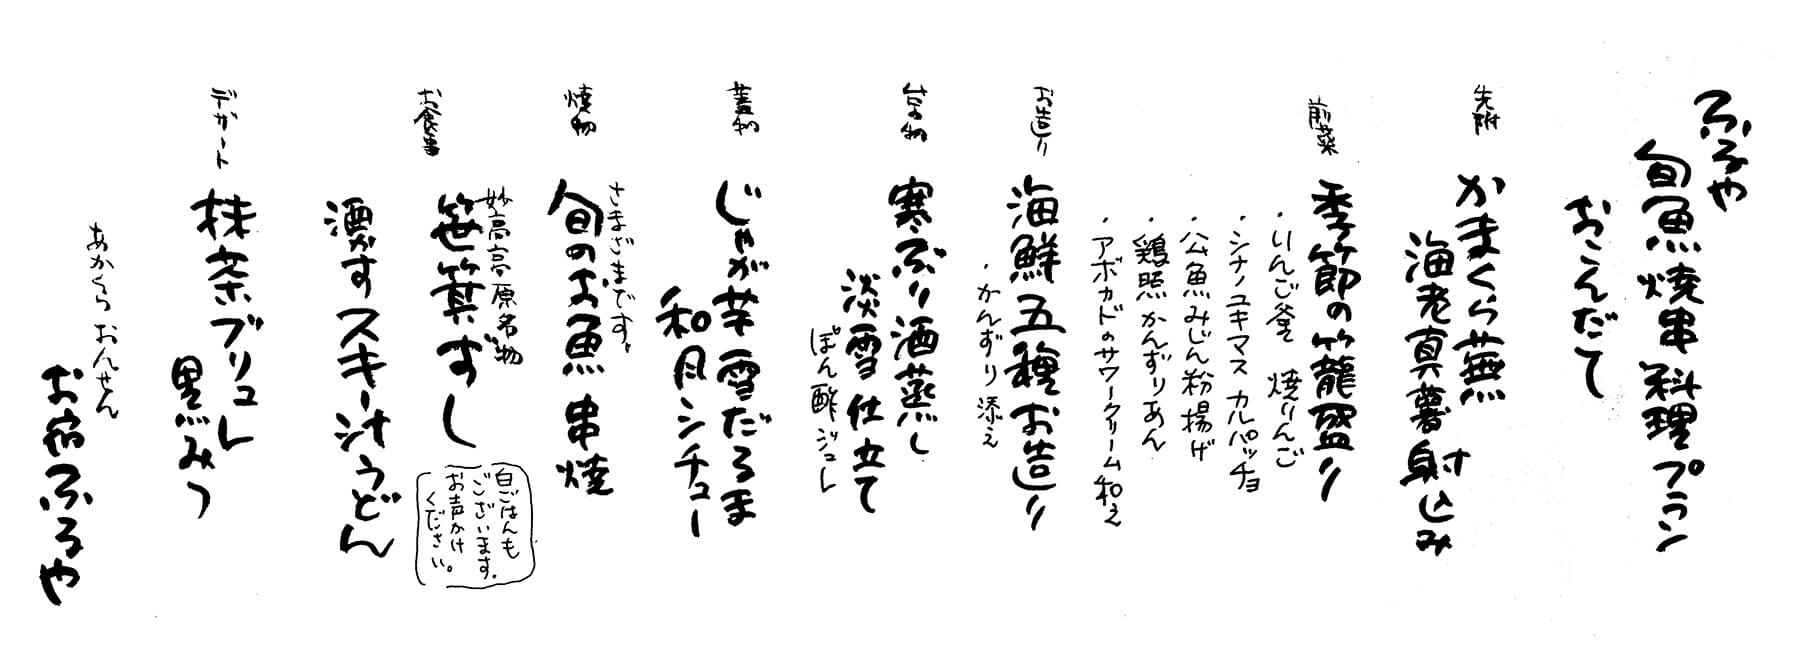 ふるや
旬魚焼串料理プラン
おこんだて
先附
かまくら蕪
海老真薯射込み
前菜
季節の籠盛り
・りんご釜 焼りんご
・シナノユキマスカルパッチョ
・公魚みじん粉揚げ
・鶏照かんずりあん
・アボカドのサワークリーム和え
お造り
海鮮五種お造り
・かんずり添え
台の物
寒ぶり酒蒸し
淡雪仕立て
ぽん酢ジュレ
蓋物
じゃが芋雪だるま
和風シチュー
焼物
さまざまです。
旬のお魚串焼
お食事
妙高高原名物
笹箕ずし
白ごはんも
ございます。
お声かけ
ください。
酒かすスキー汁うどん
デザート
抹茶ブリュレ
黒みつ
あかくらおんせん
お宿ふるや